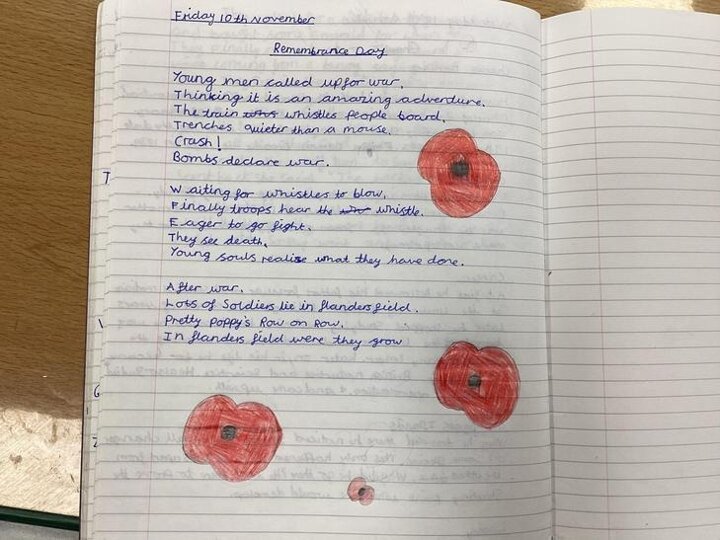 Friday 10th November
Remembrance Day
Young men called up for war.
Thinking it is an amazing adventure.
The train whistles people board.
Trenches quieter than a mouse.
Crash!
Bombs declare war.
Waiting for whistles to blow.
Finally troops hear the whistle.
Eager to go fight.
They see death.
Young souls realise what they have done.
After war.
Lots of Soldiers lie in flanders field.
Pretty Poppy's Row on Row.
In flanders field were they grow